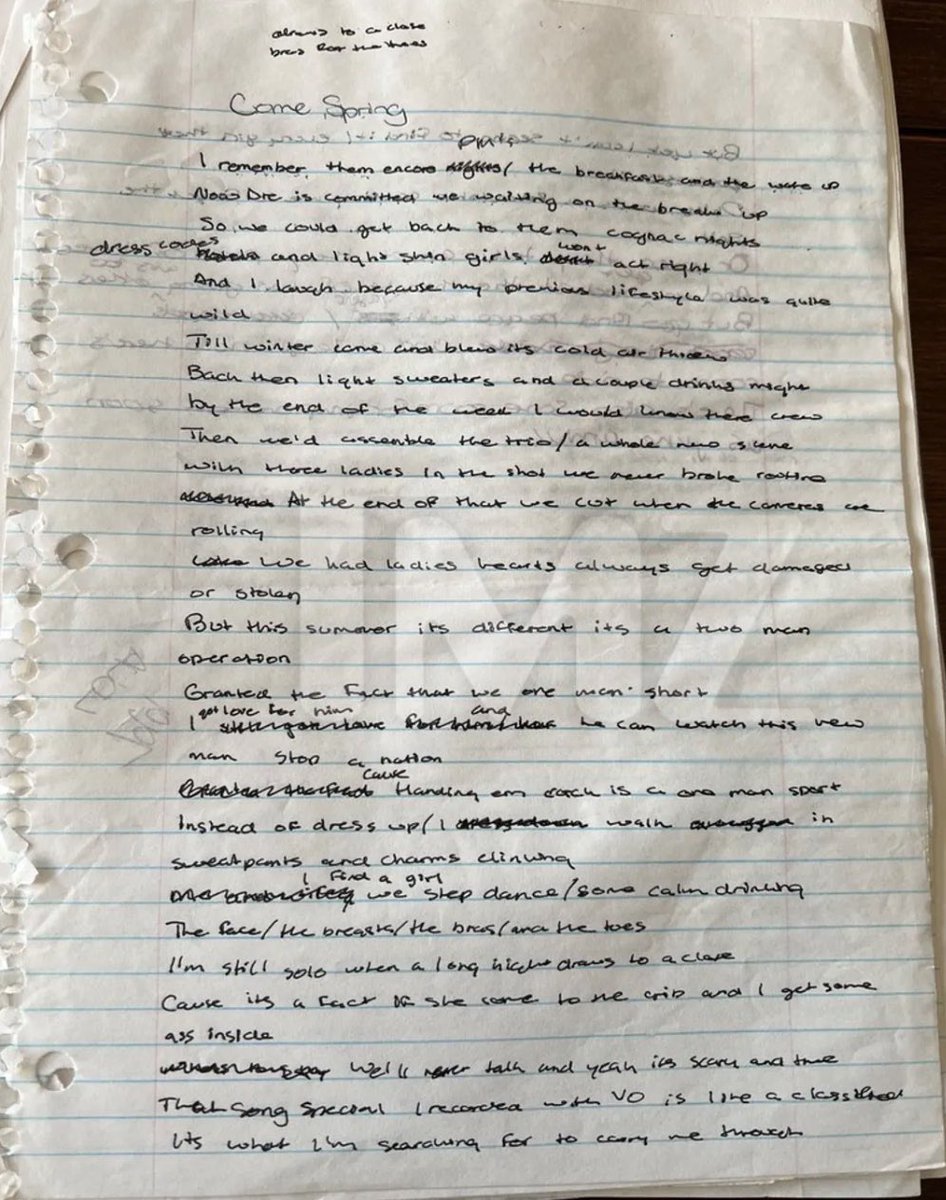 draws to a close
bras for the toes
Come Spring
I remember them encore nights/ the breakfast and the wake up
Now Dre is committed we waiting on the breaks up
So we could get back to them cognac nights
dress codes and light skin girls wont act right
And I laugh because my previous lifestyle was quite
wild
Till winter came and blew its cold air threw
Back then light sweaters and a couple drinks might
by the end of the week I would know there crew
Then we'd assemble the trio/ a whole new scene
with three ladies in the shot we never broke routine
At the end of that we cut when the cameras are
rolling
We had ladies hearts always get damaged
or stolen
But this summer its different its a two man
operation
Granted the fact that we one man short
I got love for him and he can watch this new
man stop a nation
cause Handing em each is a one man sport
Instead of dress up/ I walk in
sweatpants and charms clinking
I find a girl we step dance/ some calm drinking
The face/ the breasts/ the bras/ and the toes
I'm still solo when a long night draws to a close
Cause its a fact if she come to the crib and I get some
ass inside
We'll never talk and yeah its scary and true
That song special I recorded with VO is like a classified
Its what I'm searching for to carry me through
TMZ